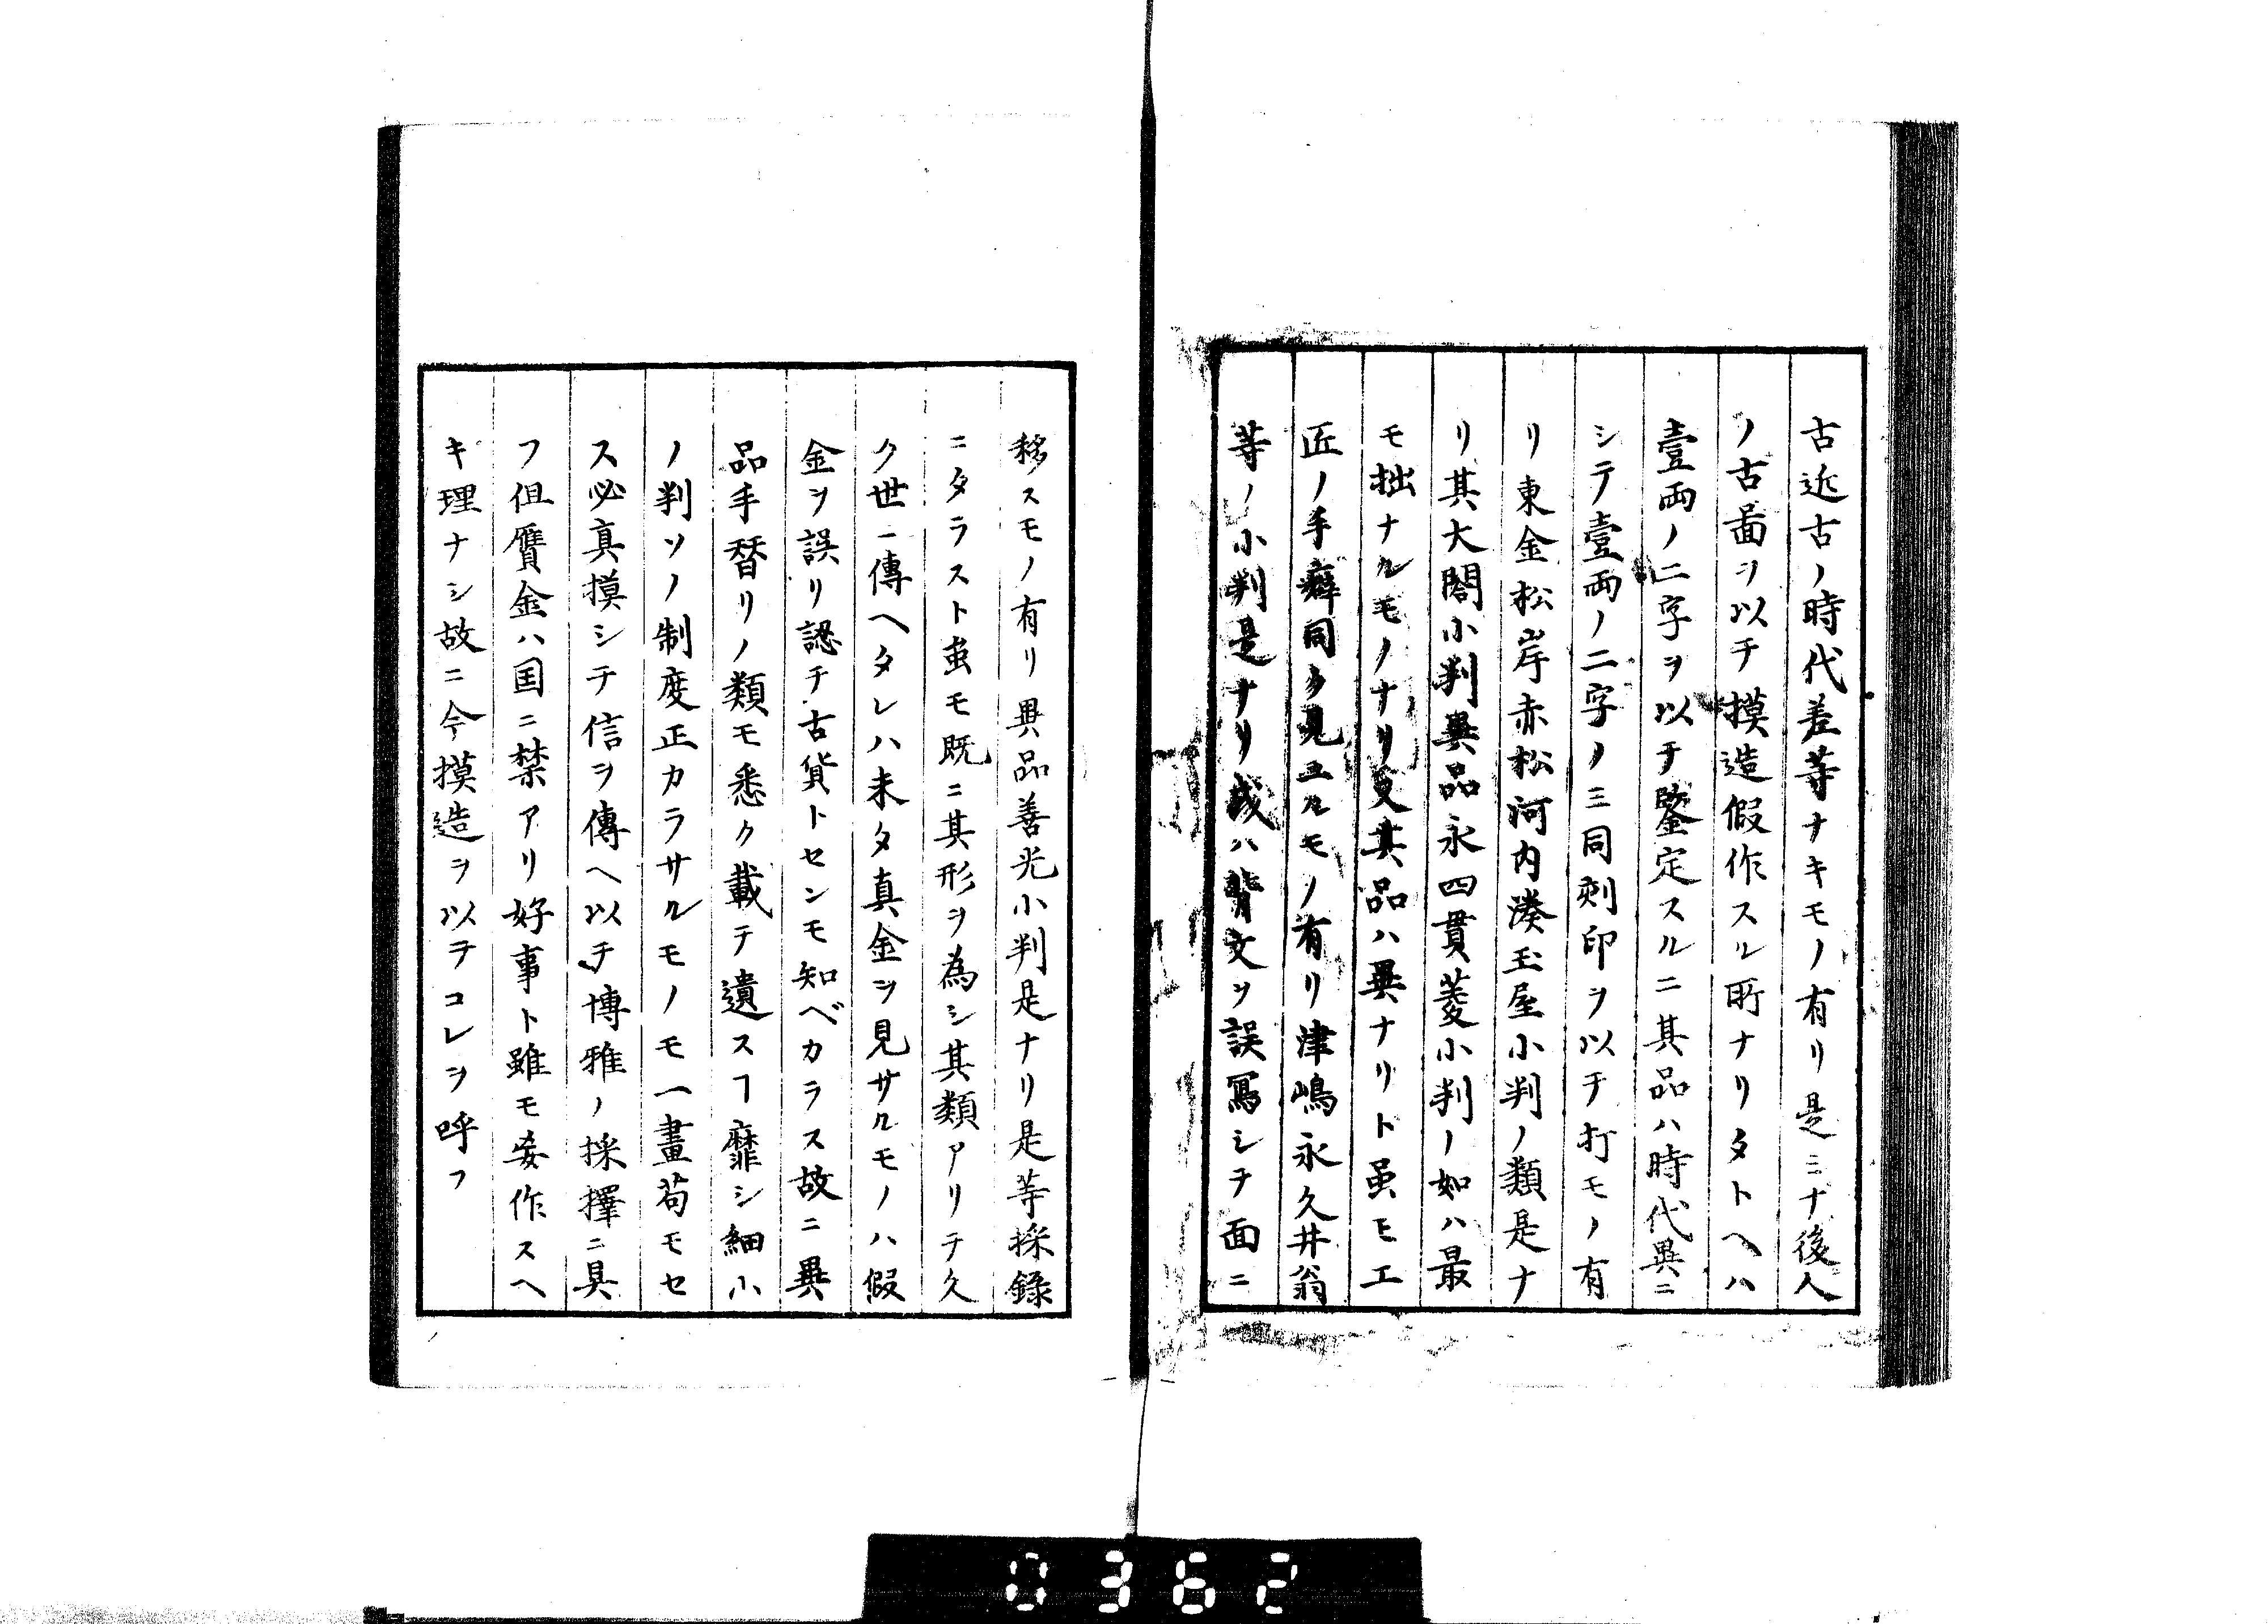 古近古ノ時代差等ナキモノ有リ是ミナ後人
ノ古畵ヲ以テ摸造假作スル所ナリタトヘハ
壹両ノ二字ヲ以テ鑒定スルニ其品ハ時代異ニ
シテ壹両ノ二字ノ三同刻印ヲ以テ打モノ有
リ東金松岸赤松河内湊玉屋小判ノ類是ナ
リ其大閤小判異品永四貫菱小判ノ如ハ最
モ拙ナルモノナリ又其品ハ異ナリト虽モ工
匠ノ手癖同ク見ユルモノ有リ津嶋永久井翁
等ノ小判是ナリ或ハ背文ヲ誤寫シテ面ニ
移スモノ有リ異品善光小判是ナリ是等採録
ニタラスト虽モ既ニ其形ヲ為シ其類アリテ久
ク世ニ傳ヘタレハ未タ真金ヲ見サルモノハ假
金ヲ誤リ認テ古貨トセンモ知ベカラス故ニ異
品手替リノ類モ悉ク載テ遺スヿ靡シ細小
ノ判ソノ制度正カラサルモノモ一畫苟モセ
ス必真摸シテ信ヲ傳ヘ以テ博雅ノ採擇ニ具
フ但贋金ハ国ニ禁アリ好事ト雖モ妄作スヘ
キ理ナシ故ニ今摸造ヲ以ヲコレヲ呼フ
0362